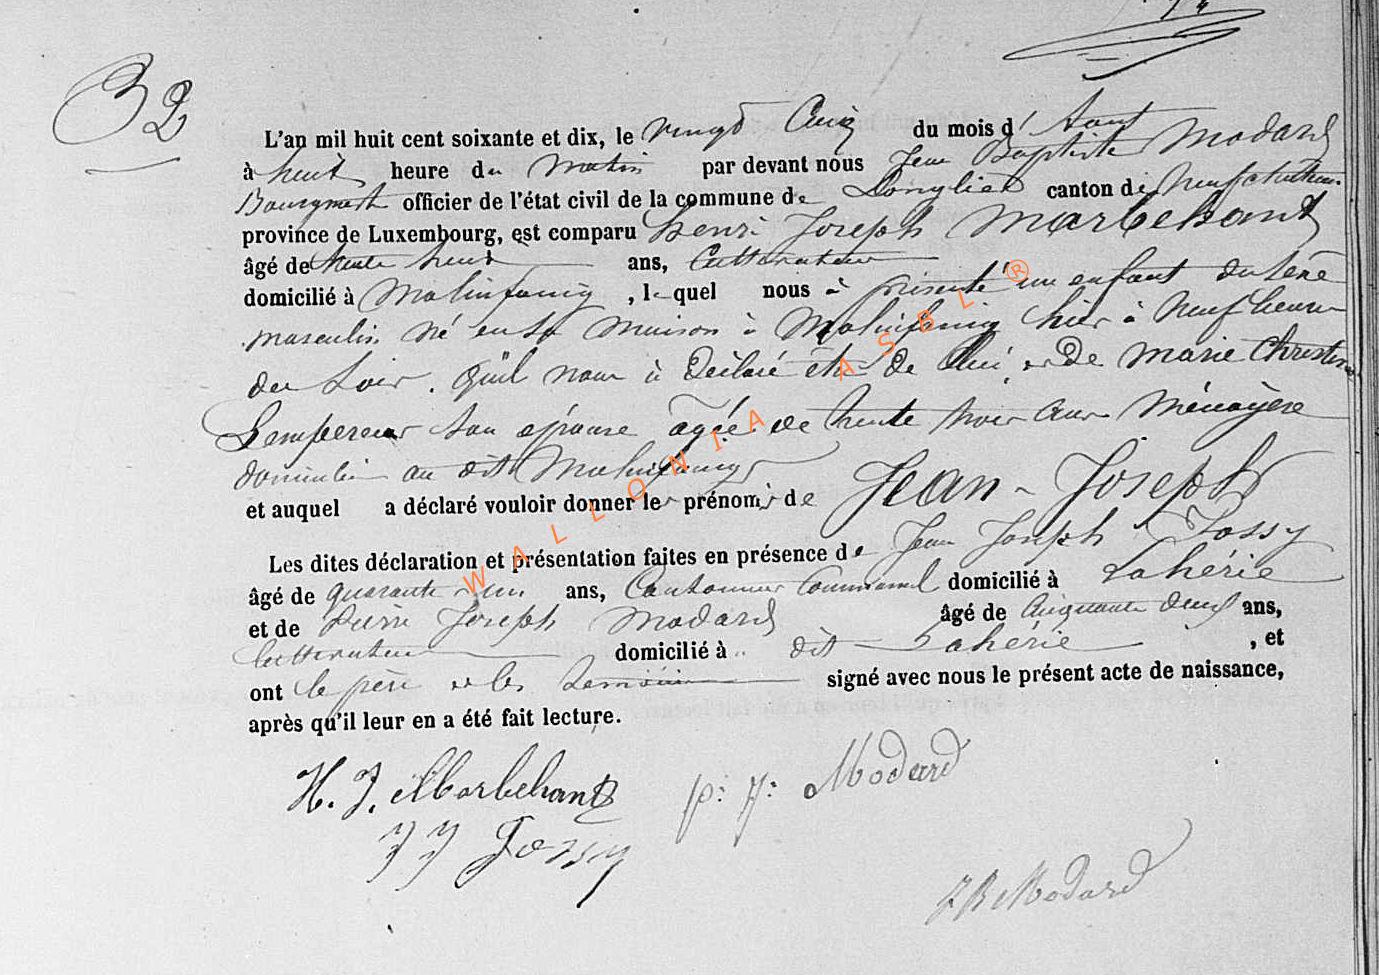 32
L'an mil huit cent soixante et dix, le vingt Cinq du mois d' Aout
à huit heure du Matin par devant nous Jean Baptiste Modard
Bourgmestre officier de l'état civil de la commune de Longlier canton de Neufchateau
province de Luxembourg, est comparu Henri Joseph Marbehant
âgé de trente ans, Cultivateur
domicilié à Molinfaing, lequel nous à présenté un enfant du sexe
masculin né en sa maison à Molinfaing hier à neuf heures
du soir. qu'il nous à déclaré être de lui et De Marie Christine
Lempereur son épouse agée de trente trois ans Ménagère
domiciliée au dit Molinfaing
et auquel a déclaré vouloir donner les prénoms de Jean-Joseph
Les dites déclaration et présentation faites en présence de Jean Joseph Jossy
âgé de quarante un ans, Cantonnier Communal domicilié à Lahérie
et de Pierre Joseph Modard âgé de Cinquante deux ans,
Cultivateur domicilié à dit Lahérie, et
ont le père et les témoins signé avec nous le présent acte de naissance,
après qu'il leur en a été fait lecture.
H. J. Marbehant p: j: Modard
J J Jossy
J B Modard
WALLONIA ASBL ®